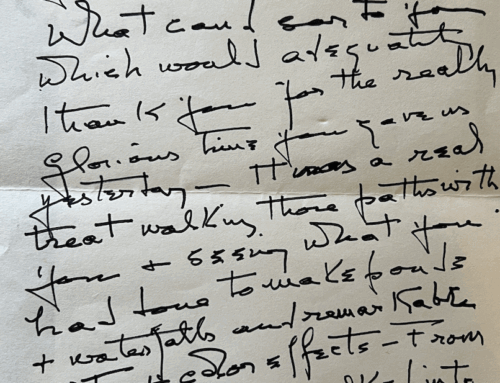 What can I say to you
which would adequately
thank you for the really
glorious time you gave us
yesterday — It was a real
treat walking those paths with
you + seeing what you
had done to make ponds
+ waterfalls and remarkable
color effects — from